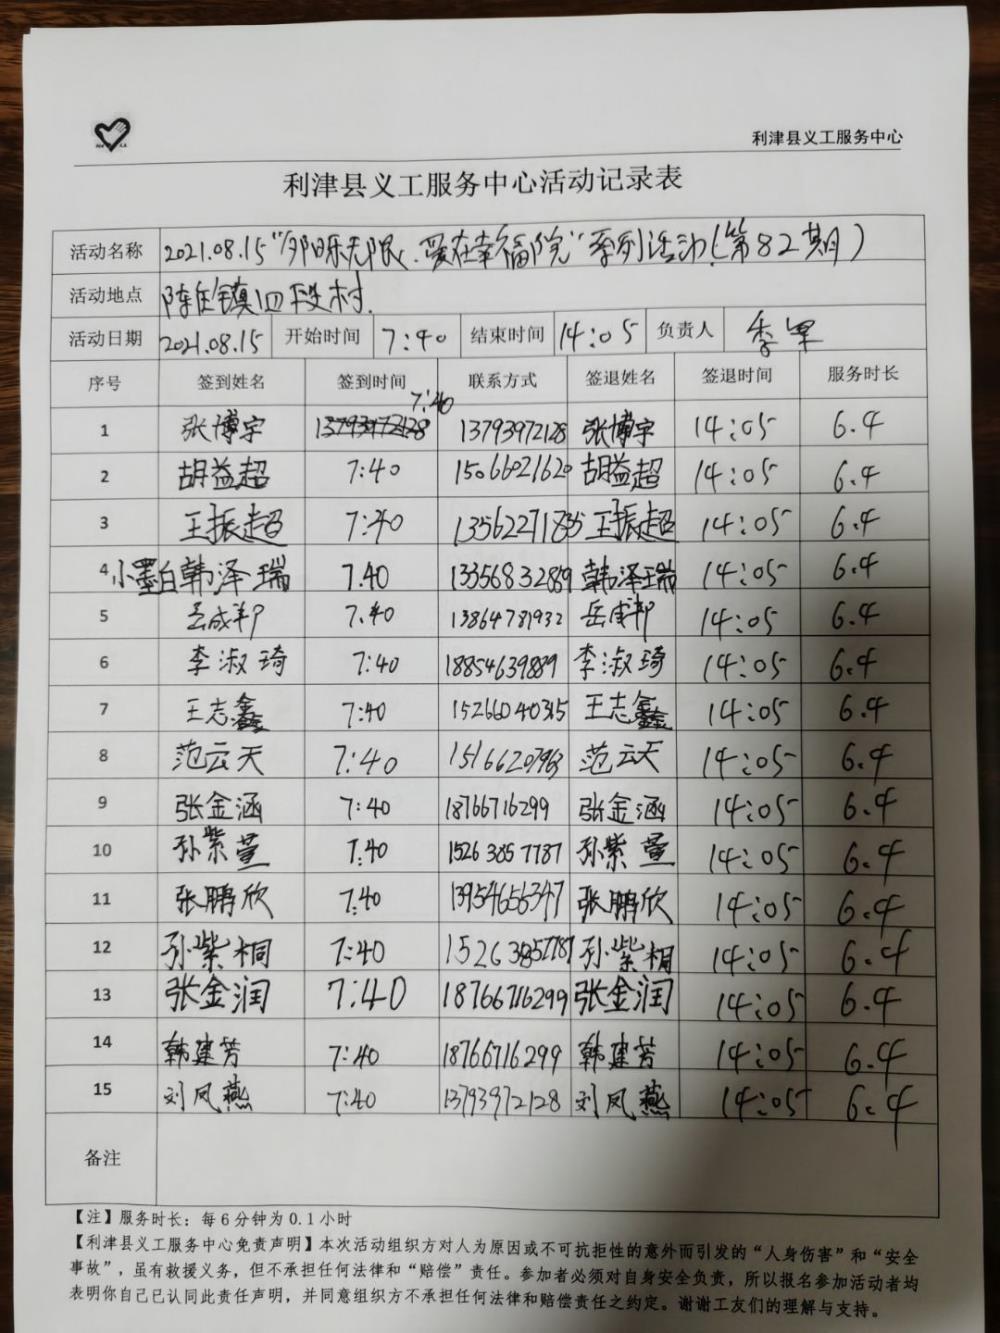 利津县义工服务中心
利津县义工服务中心活动记录表
活动名称 2021.08.15"夕阳乐无限、爱在幸福院"系列活动(第82期)
活动地点 陈庄镇四段村.
活动日期 2021.08.15 开始时间 7:40 结束时间 14:05 负责人 季军
序号 签到姓名 签到时间 联系方式 签退姓名 签退时间 服务时长
7:40
1 张博宇 13793972128 13793972128 张博宇 14:05 6.4
2 胡益超 7:40 15066021620 胡益超 14:05 6.4
3 王振超 7:40 13562271835 王振超 14:05 6.4
4 小墨白韩泽瑞 7.40 13356832889 韩泽瑞 14:05 6.4
5 岳成邦 7.40 13864781932 岳成邦 14:05 6.4
6 李淑琦 7:40 18854639889 李淑琦 14:05 6.4
7 王志鑫 7:40 15266040315 王志鑫 14:05 6.4
8 范云天 7:40 15166207963 范云天 14:05 6.4
9 张金涵 7:40 18766716299 张金涵 14:05 6.4
10 孙紫萱 7:40 15263857787 孙紫萱 14:05 6.4
11 张鹏欣 7:40 13954656347 张鹏欣 14:05 6.4
12 孙紫桐 7:40 15263857787 孙紫桐 14:05 6.4
13 张金润 7:40 18766716299 张金润 14:05 6.4
14 韩建芳 7:40 18766716299 韩建芳 14:05 6.4
15 刘凤燕 7:40 13793972128 刘凤燕 14:05 6.4
备注
【注】服务时长：每6分钟为0.1小时
【利津县义工服务中心免责声明】本次活动组织方对人为原因或不可抗拒性的意外而引发的“人身伤害”和“安全
事故”，虽有救援义务，但不承担任何法律和“赔偿”责任。参加者必须对自身安全负责，所以报名参加活动者均
表明你自己已认同此责任声明，并同意组织方不承担任何法律和赔偿责任之约定。谢谢工友们的理解与支持。